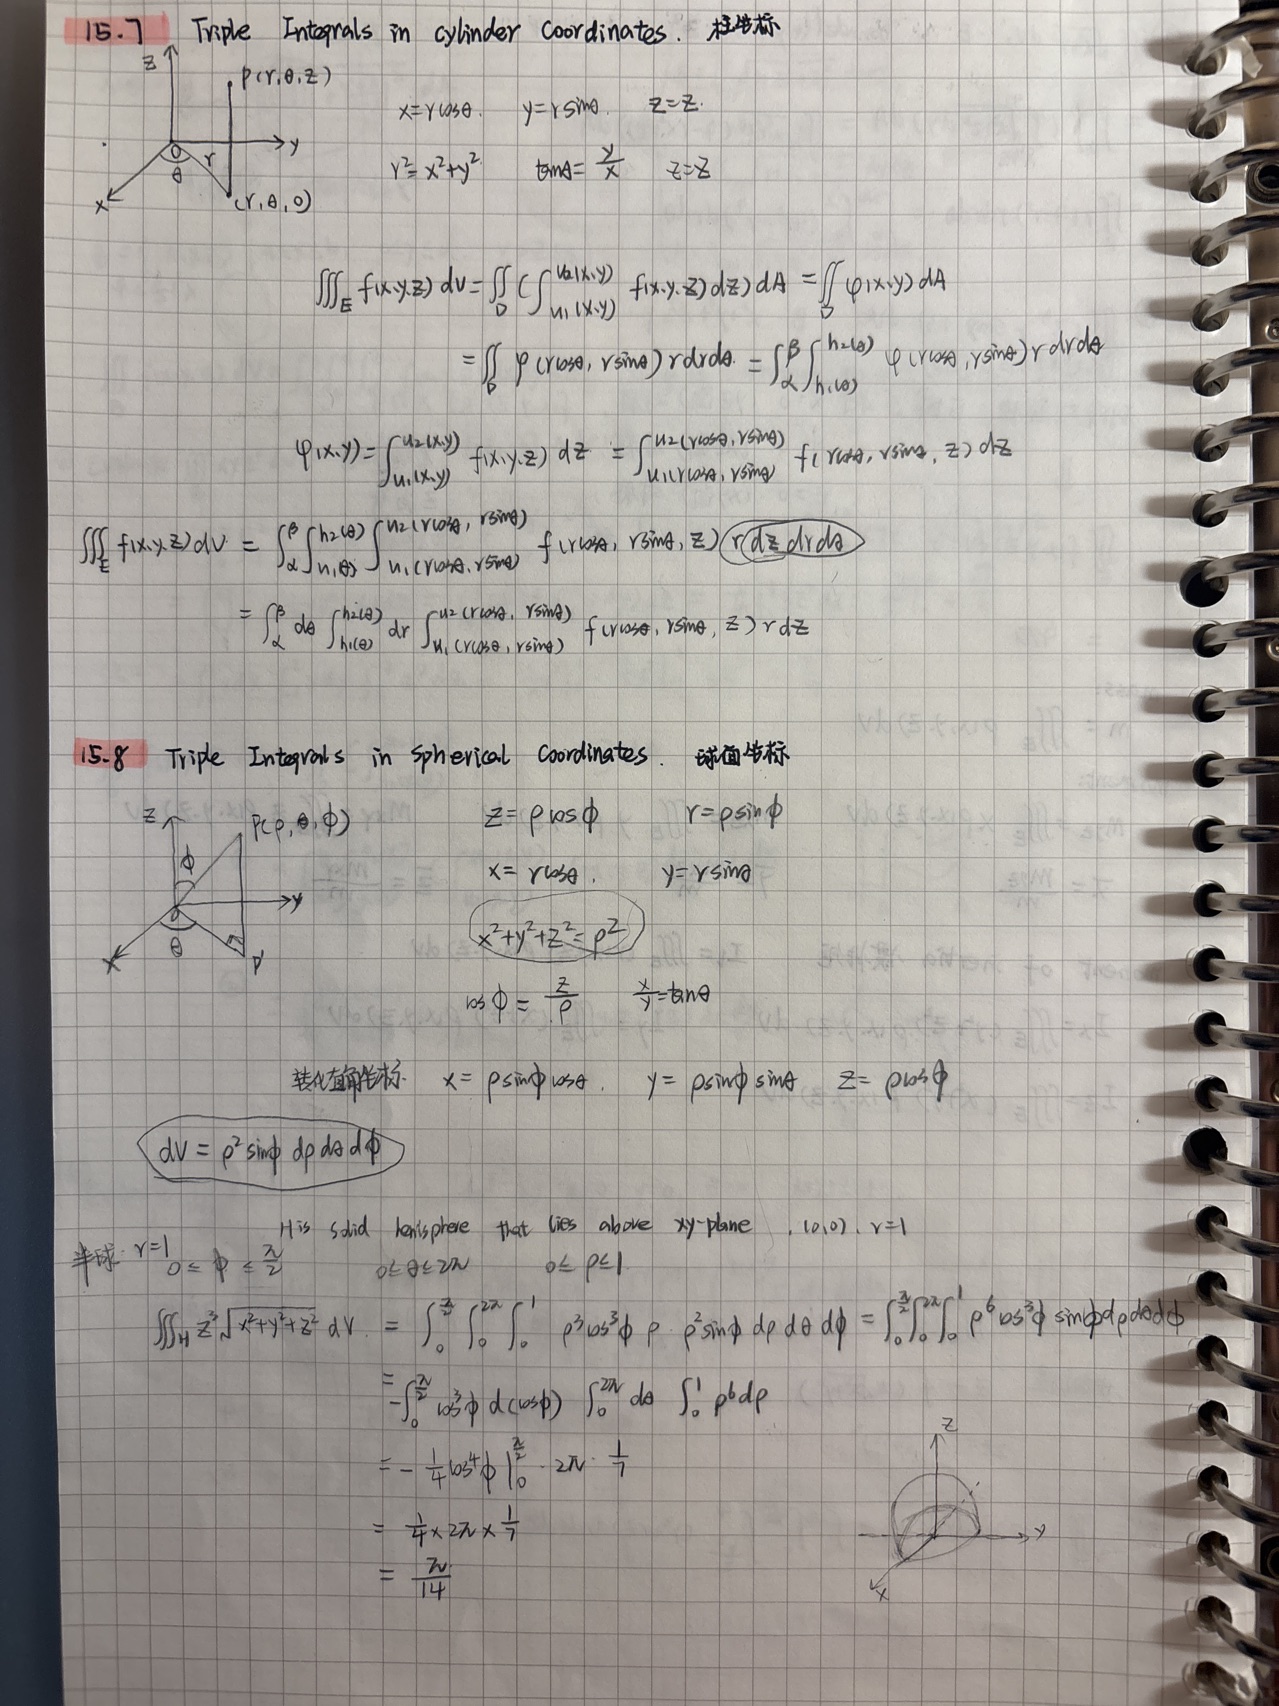 15.7 Triple Integrals in cylinder Coordinates. 柱坐标
z P(r,θ,z)
x=rcosθ. y=rsinθ. z=z.
0 r y
θ
r²=x²+y² tanθ=y/x z=z
x (r,θ,0)
∭_E f(x,y,z) dV = ∬_D (∫_{u₁(x,y)}^{u₂(x,y)} f(x,y,z)dz) dA = ∬_D φ(x,y) dA
= ∬_D φ(rcosθ, rsinθ) r dr dθ. = ∫_α^β ∫_{h₁(θ)}^{h₂(θ)} φ(rcosθ, rsinθ) r dr dθ
φ(x,y) = ∫_{u₁(x,y)}^{u₂(x,y)} f(x,y,z) dz = ∫_{u₁(rcosθ, rsinθ)}^{u₂(rcosθ, rsinθ)} f(rcosθ, rsinθ, z) dz
∭_E f(x,y,z) dV = ∫_α^β ∫_{h₁(θ)}^{h₂(θ)} ∫_{u₁(rcosθ, rsinθ)}^{u₂(rcosθ, rsinθ)} f(rcosθ, rsinθ, z) r dz dr dθ
= ∫_α^β dθ ∫_{h₁(θ)}^{h₂(θ)} dr ∫_{u₁(rcosθ, rsinθ)}^{u₂(rcosθ, rsinθ)} f(rcosθ, rsinθ, z) r dz
15.8 Triple Integrals in Spherical Coordinates. 球面坐标
z P(ρ,θ,ϕ)
z=ρcosϕ r=ρsinϕ
ϕ
x=rcosθ. y=rsinθ
0 y
x²+y²+z²=ρ²
θ
x P'
cosϕ=z/ρ x/y=tanθ
转化直角坐标. x=ρsinϕcosθ. y=ρsinϕsinθ z=ρcosϕ
dV=ρ²sinϕ dρ dθ dϕ
H is solid hemisphere that lies above xy-plane. (0,0). r=1
半球. r=1
0≤ϕ≤π/2 0≤θ≤2π 0≤ρ≤1.
∭_H z³√(x²+y²+z²) dV. = ∫_0^{π/2} ∫_0^{2π} ∫_0^1 ρ³cos³ϕ ρ ρ²sinϕ dρ dθ dϕ = ∫_0^{π/2} ∫_0^{2π} ∫_0^1 ρ⁶cos³ϕ sinϕ dρ dθ dϕ
= -∫_0^{π/2} cos³ϕ d(cosϕ) ∫_0^{2π} dθ ∫_0^1 ρ⁶dρ
= -1/4 cos⁴ϕ |_0^{π/2} · 2π · 1/7
= 1/4 × 2π × 1/7
= π/14
z
y
x